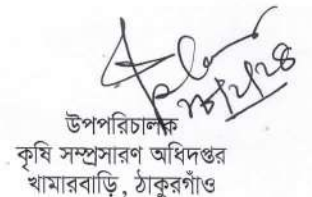 উপপরিচালক
কৃষি সম্প্রসারণ অধিদপ্তর
খামারবাড়ি, ঠাকুরগাঁও